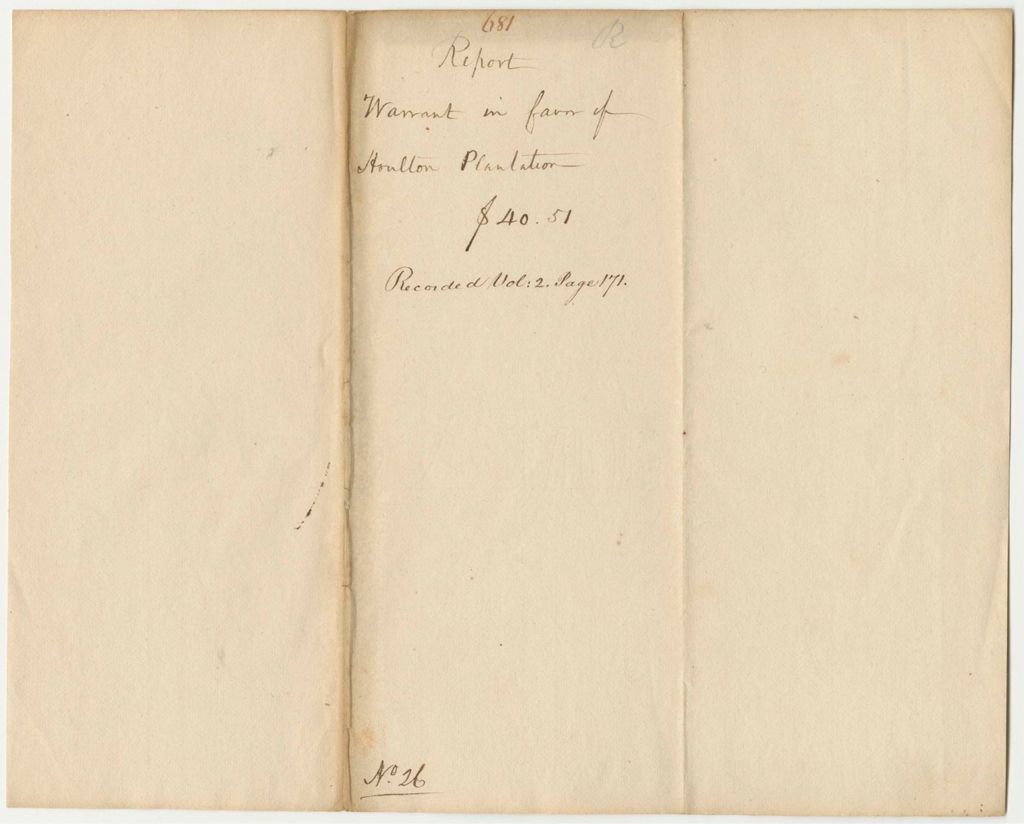 681 R
Report
Warrant in favor of
Houlton Plantation
$40.51
Recorded Vol: 2. Page 171.
No. 26